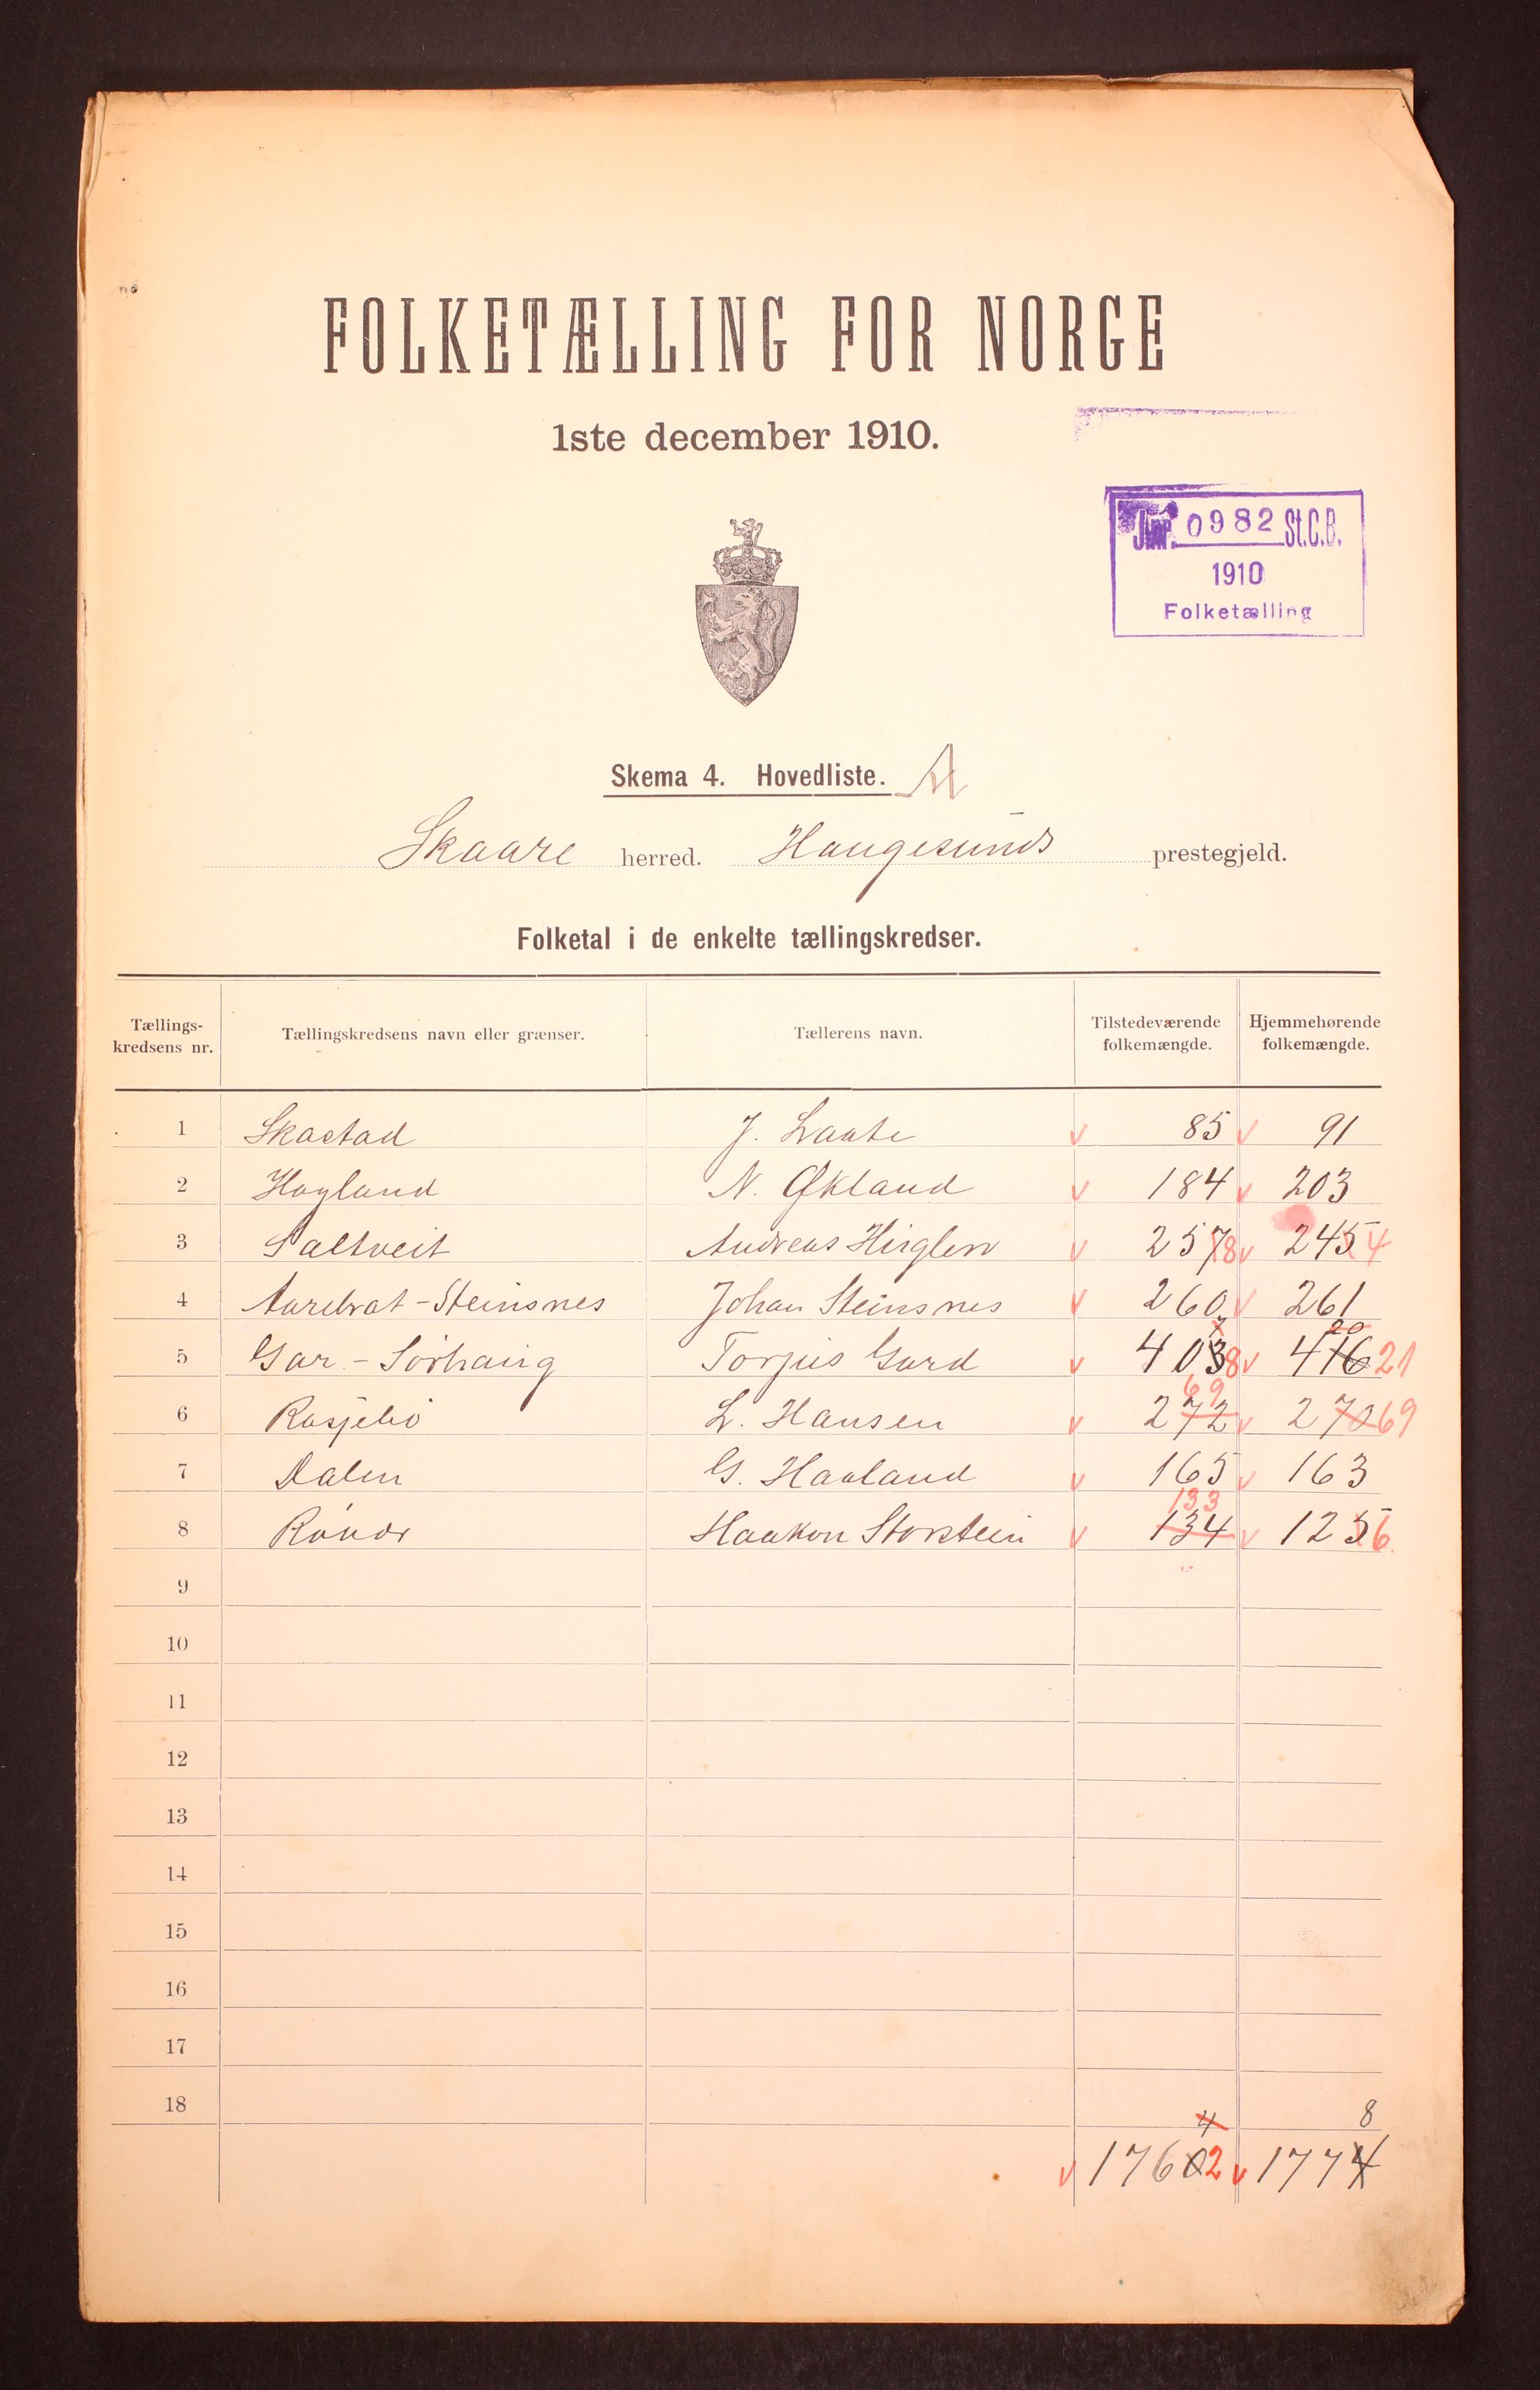 FOLKETÆLLING FOR NORGE
1ste december 1910.
Jnr. 0982 St.C.B.
1910
Folketælling
Skema 4. Hovedliste.
Skaare herred. Haugesunds prestegjeld.
Folketal i de enkelte tællingskredser.
Tællings-kredsens nr. Tællingskredsens navn eller grænser. Tællerens navn. Tilstedeværende folkemængde. Hjemmehørende folkemængde.
1 Skastad J. Laate v 85 v 91
2 Hagland N. Økland v 184 v 203
3 Saltveit Andreas v 257 8 v 245 4
4 Steinsnes Johan Steinsnes v 260 v 261
7 20
5 Gar - Sörhaug Torjus Gard v 403 8 v 416 21
69
6 L. Hansen v 272 v 270 69
7 Dalen G. Haaland v 165 v 163
133
8 Haakon Storstein v 134 v 125 6
9
10
11
12
13
14
15
16
17
18
4 8
v 1760 2 v 1774